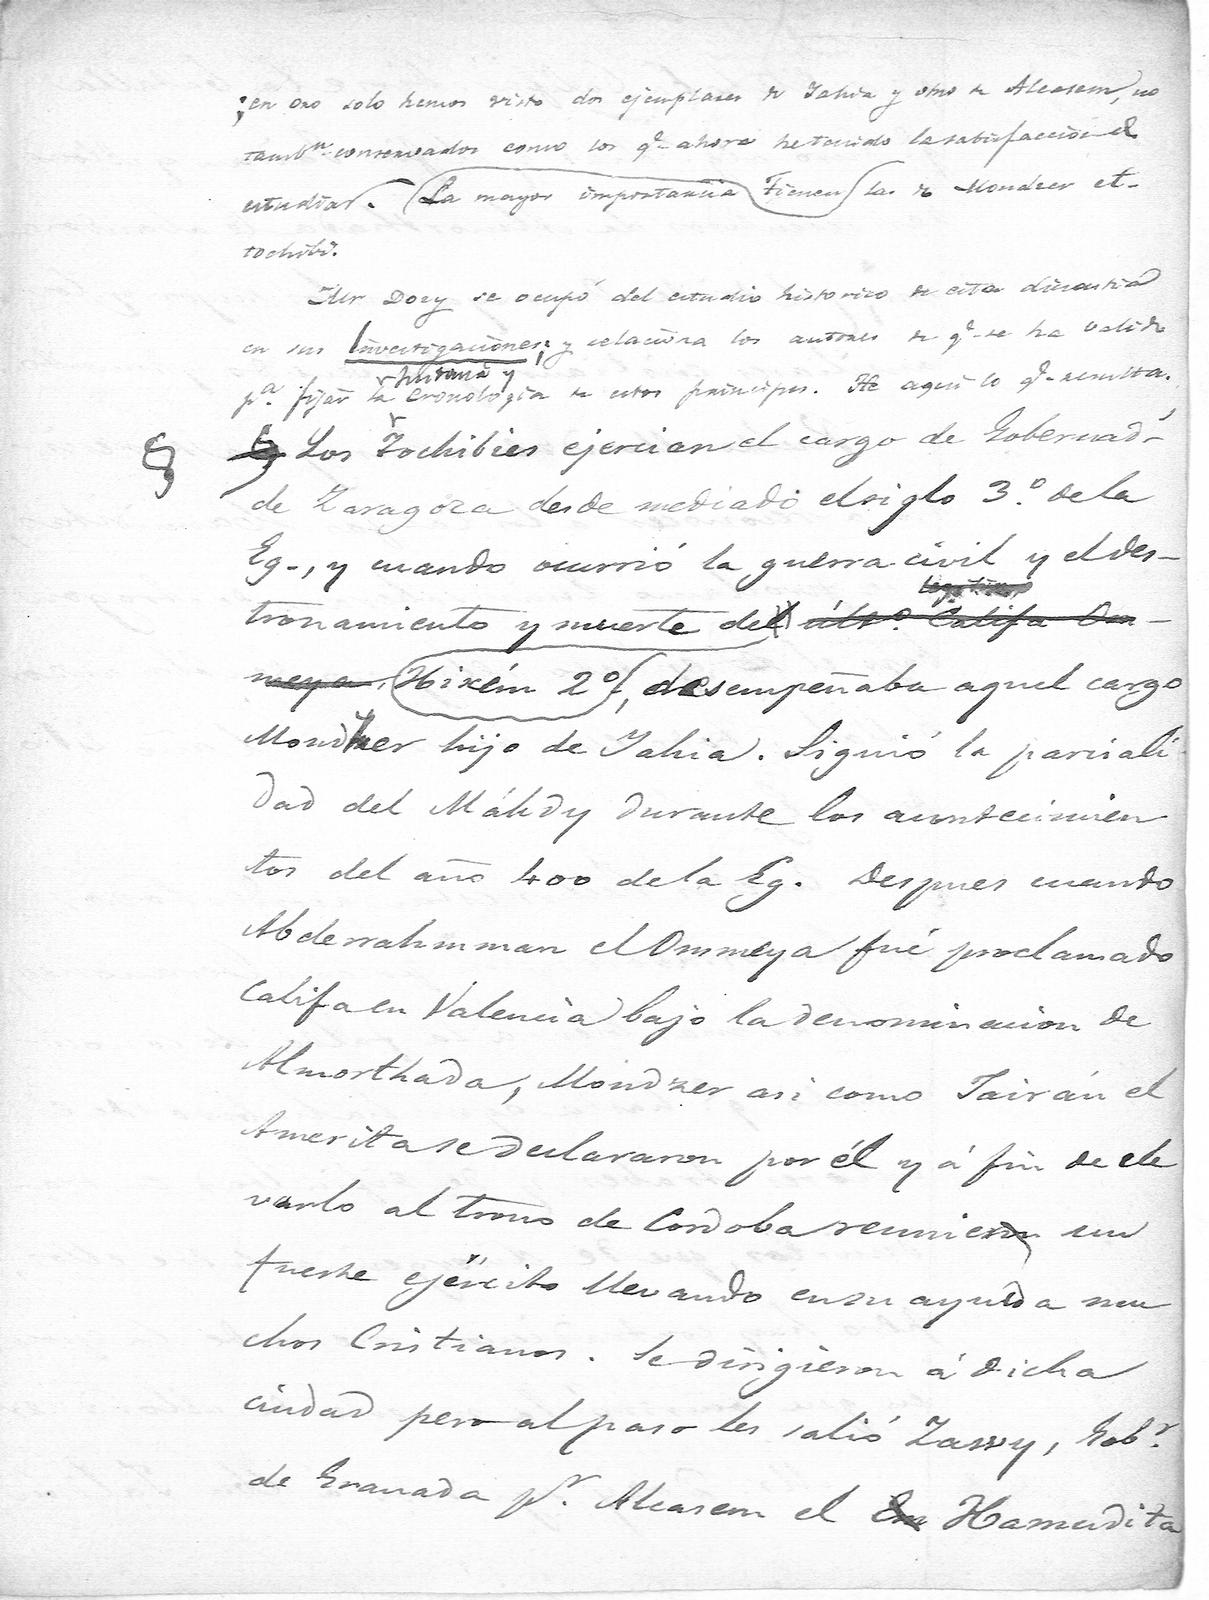 ; en oro solo hemos visto dos ejemplares de Jahia y otro de Alcasem, no
tambn. conservados como los q. ahora he tenido la satisfacción de
estudiar. La mayor importancia tienen la de Mondzer et-
tochibi.
Mr Dozy se ocupó del estudio historico de esta dinastia
en sus Investigaciones; y relaciona los autores de q. se ha valido
historia y
pa. fijar la cronologia de estos principes. He aqui lo q. resulta.
§ Los Tochibies ejercian el cargo de Gobernadr
de Zaragoza desde mediado el siglo 3.º de la
Eg-, y cuando ocurrió la guerra civil y el des-
legitimo
tronamiento y muerte del últº. Califa Om-
meya, Hixém 2º, desempeñaba aquel cargo
Mondzer hijo de Jahia. Siguió la parciali-
dad del Máhdy durante los acontecimien
tos del año 400 de la Eg. Despues cuando
Abderrahmman el Ommeya fué proclamado
Califa en Valencia bajo la denominacion de
Almorthada, Mondzer asi como Jairán el
Amerita se declararon por él y á fin de ele
varlo al trono de Cordoba reunieron un
fuerte ejército llevando en su ayuda mu
chos Cristianos. Se dirigieron á dicha
ciudad pero al paso les salió Zawy, Gobr.
de Granada pr. Alcasem el Hamudita